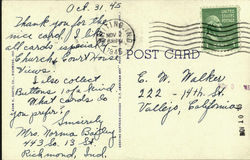 Oct. 31, 45
Thank you for the
nice card. I like
all cards especially
Church & Court House
Views.
I also collect
Buttons, of a kind.
What cards do
you prefer?
Sincerely
Mrs. Norma
443 So. 13 St.
Richmond, Ind.
NOV 2
1945
POST CARD
C. W. Walker
222 - 14th St.
Vallejo, California